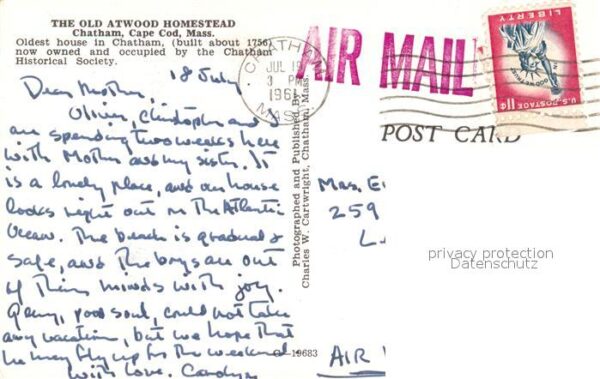 THE OLD ATWOOD HOMESTEAD
Chatham, Cape Cod, Mass.
Oldest house in Chatham, (built about 1756)
now owned and occupied by the Chatham
Historical Society.
18 July
Dear Mother,
Olivier, Christopher and I
are spending two weeks here
with Mother and my sister. It
is a lovely place, and our house
looks right out on the Atlantic
Ocean. The beach is gradual &
safe, and the boys are out
of their minds with joy.
poor soul, could not take
any vacation, but we hope that
he may fly up for the weekend
With love. Carolyn
Photographed and Published By
Charles W. Cartwright, Chatham, Mass.
C-19683
CHATHAM
JUL 19
3 PM
1961
MASS.
AIR MAIL
LIBERTY
IN GOD WE TRUST
U.S. POSTAGE 11¢
POST CARD
Mrs. E
259
L
AIR
privacy protection
Datenschutz